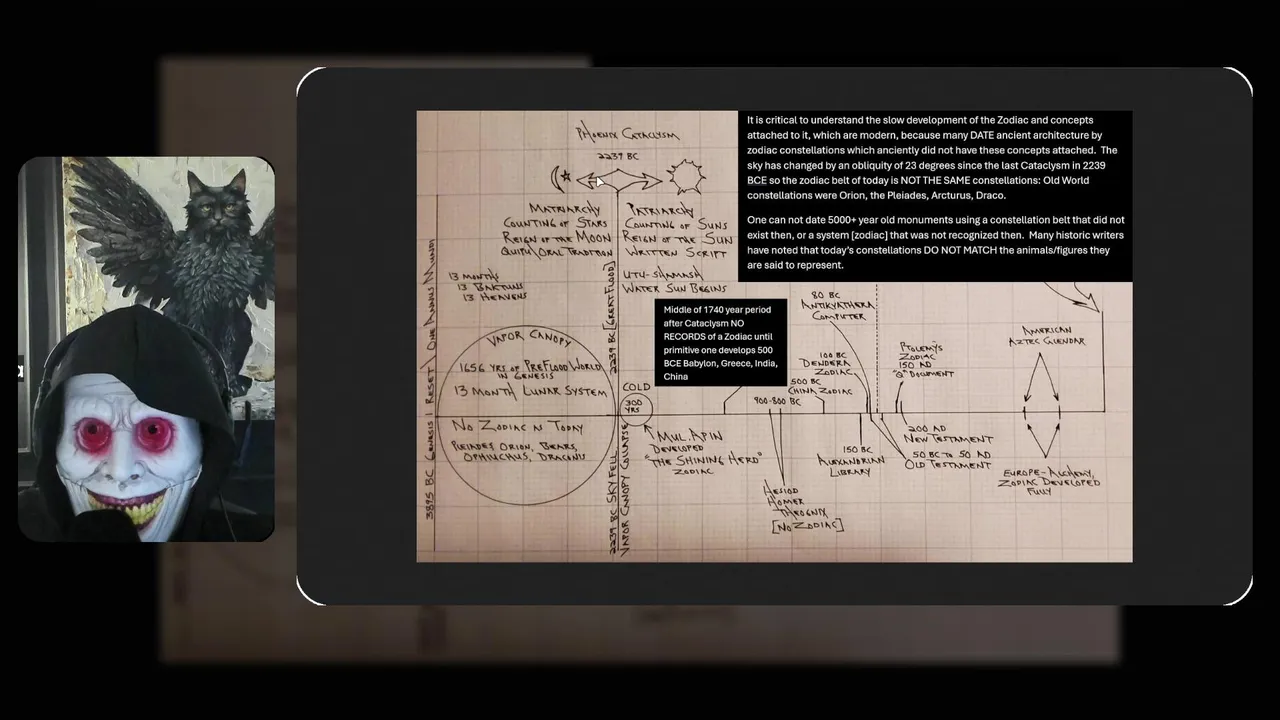 PHOENIX CATACLYSM
2239 BC
It is critical to understand the slow development of the Zodiac and concepts
attached to it, which are modern, because many DATE ancient architecture by
zodiac constellations which anciently did not have these concepts attached. The
sky has changed by an obliquity of 23 degrees since the last Cataclysm in 2239
BCE so the zodiac belt of today is NOT THE SAME constellations: Old World
constellations were Orion, the Pleiades, Arcturus, Draco.
One can not date 5000+ year old monuments using a constellation belt that did not
exist then, or a system [zodiac] that was not recognized then. Many historic writers
have noted that today's constellations DO NOT MATCH the animals/figures they
are said to represent.
MATRIARCHY
COUNTING OF STARS
REIGN OF THE MOON
QUIPU/ORAL TRADITION
PATRIARCHY
COUNTING OF SUNS
REIGN OF THE SUN
WRITTEN SCRIPT
13 MONTHS
13 BAKTUNS
13 HEAVENS
UTU-SHAMASH
WATER SUN BEGINS
2239 BC [GREAT FLOOD]
3895 BC GENESIS 1 RESET / ONE ANNUS MUNDI
VAPOR CANOPY
1656 YRS OF PREFLOOD WORLD
IN GENESIS
13 MONTH LUNAR SYSTEM
NO ZODIAC AS TODAY
PLEIADES, ORION, BEARS,
OPHIUCHUS, DRACONIS
2239 BC SKY FELL
VAPOR CANOPY COLLAPSE
COLD
300
YRS
Middle of 1740 year period
after Cataclysm NO
RECORDS of a Zodiac until
primitive one develops 500
BCE Babylon, Greece, India,
China
MUL.APIN
DEVELOPED
"THE SHINING HERD"
ZODIAC
900-800 BC
HESIOD
HOMER
THEOGNIX
[NO ZODIAC]
500 BC
CHINA ZODIAC
100 BC
DENDERA
ZODIAC
80 BC
ANTIKYATHERA
COMPUTER
150 BC
ALEXANDRIAN
LIBRARY
PTOLEMY'S
ZODIAC
150 AD
"Q" DOCUMENT
200 AD
NEW TESTAMENT
50 BC TO 50 AD
OLD TESTAMENT
AMERICAN
AZTEC CALENDAR
EUROPE-ALCHEMY,
ZODIAC DEVELOPED
FULLY